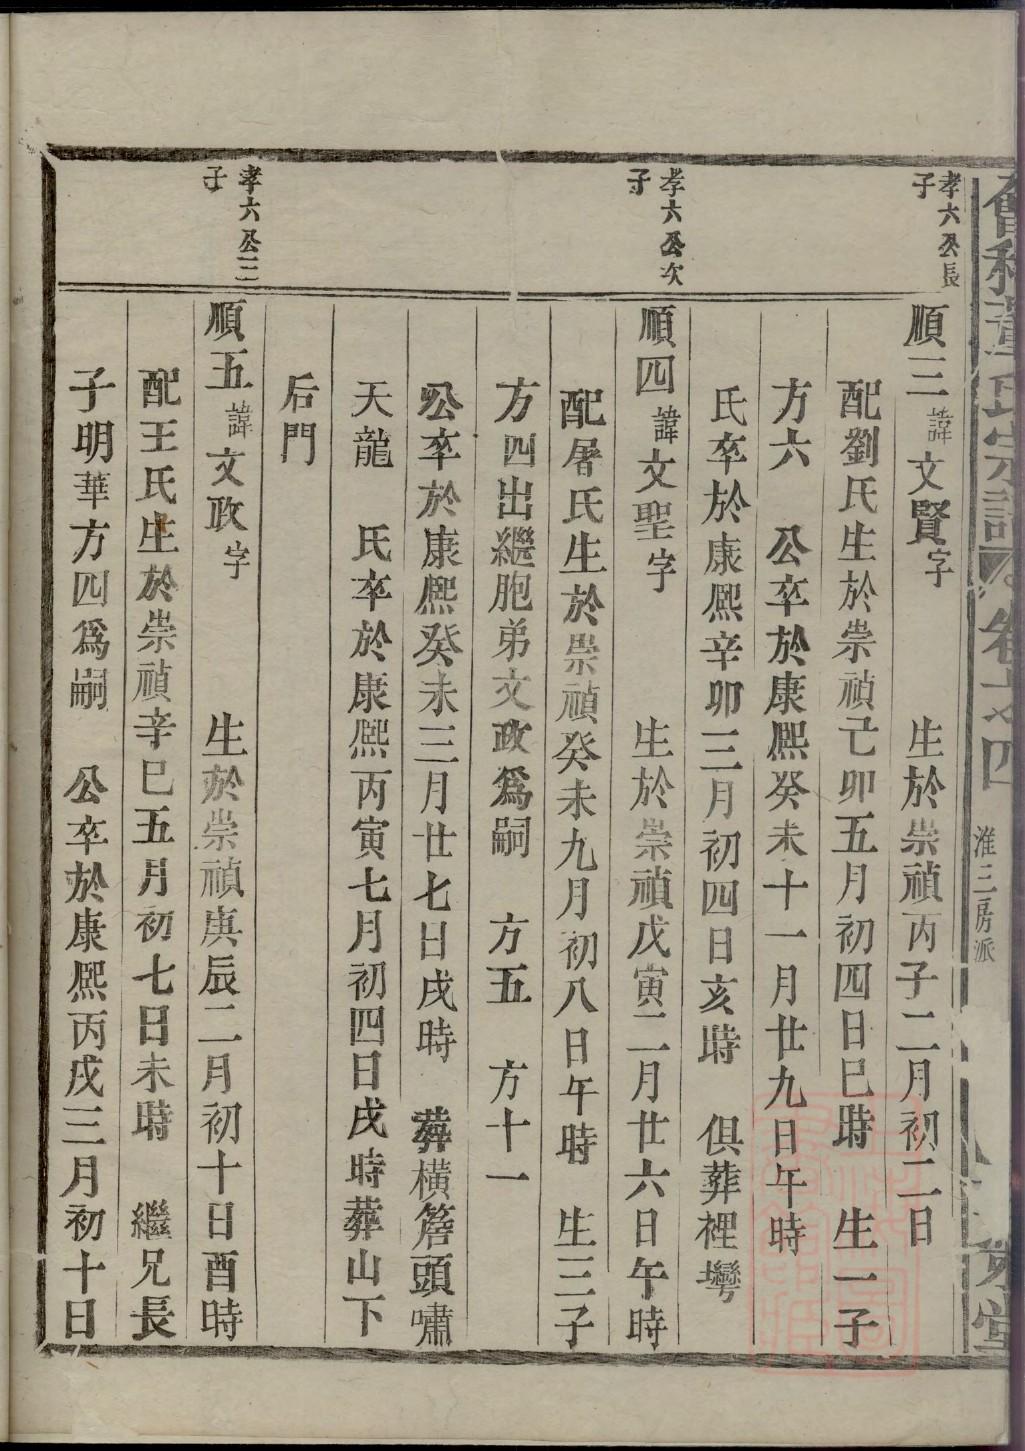 宗譜
淮三房派
孝六公長
子
順三諱文賢字 生於崇禎丙子二月初二日
配劉氏生於崇禎己卯五月初四日巳時 生一子
方六 公卒於康熙癸未十一月廿九日午時
氏卒於康熙辛卯三月初四日亥時 俱葬裡塆
孝六公次
子
順四諱文聖字 生於崇禎戊寅二月廿六日午時
配屠氏生於崇禎癸未九月初八日午時 生三子
方四出繼胞弟文政爲嗣 方五 方十一
公卒於康熙癸未三月廿七日戌時 葬橫簷頭嘯
天龍 氏卒於康熙丙寅七月初四日戌時葬山下
后門
孝六公三
子
順五諱文政字 生於崇禎庚辰二月初十日酉時
配王氏生於崇禎辛巳五月初七日未時 繼兄長
子明華方四爲嗣 公卒於康熙丙戌三月初十日